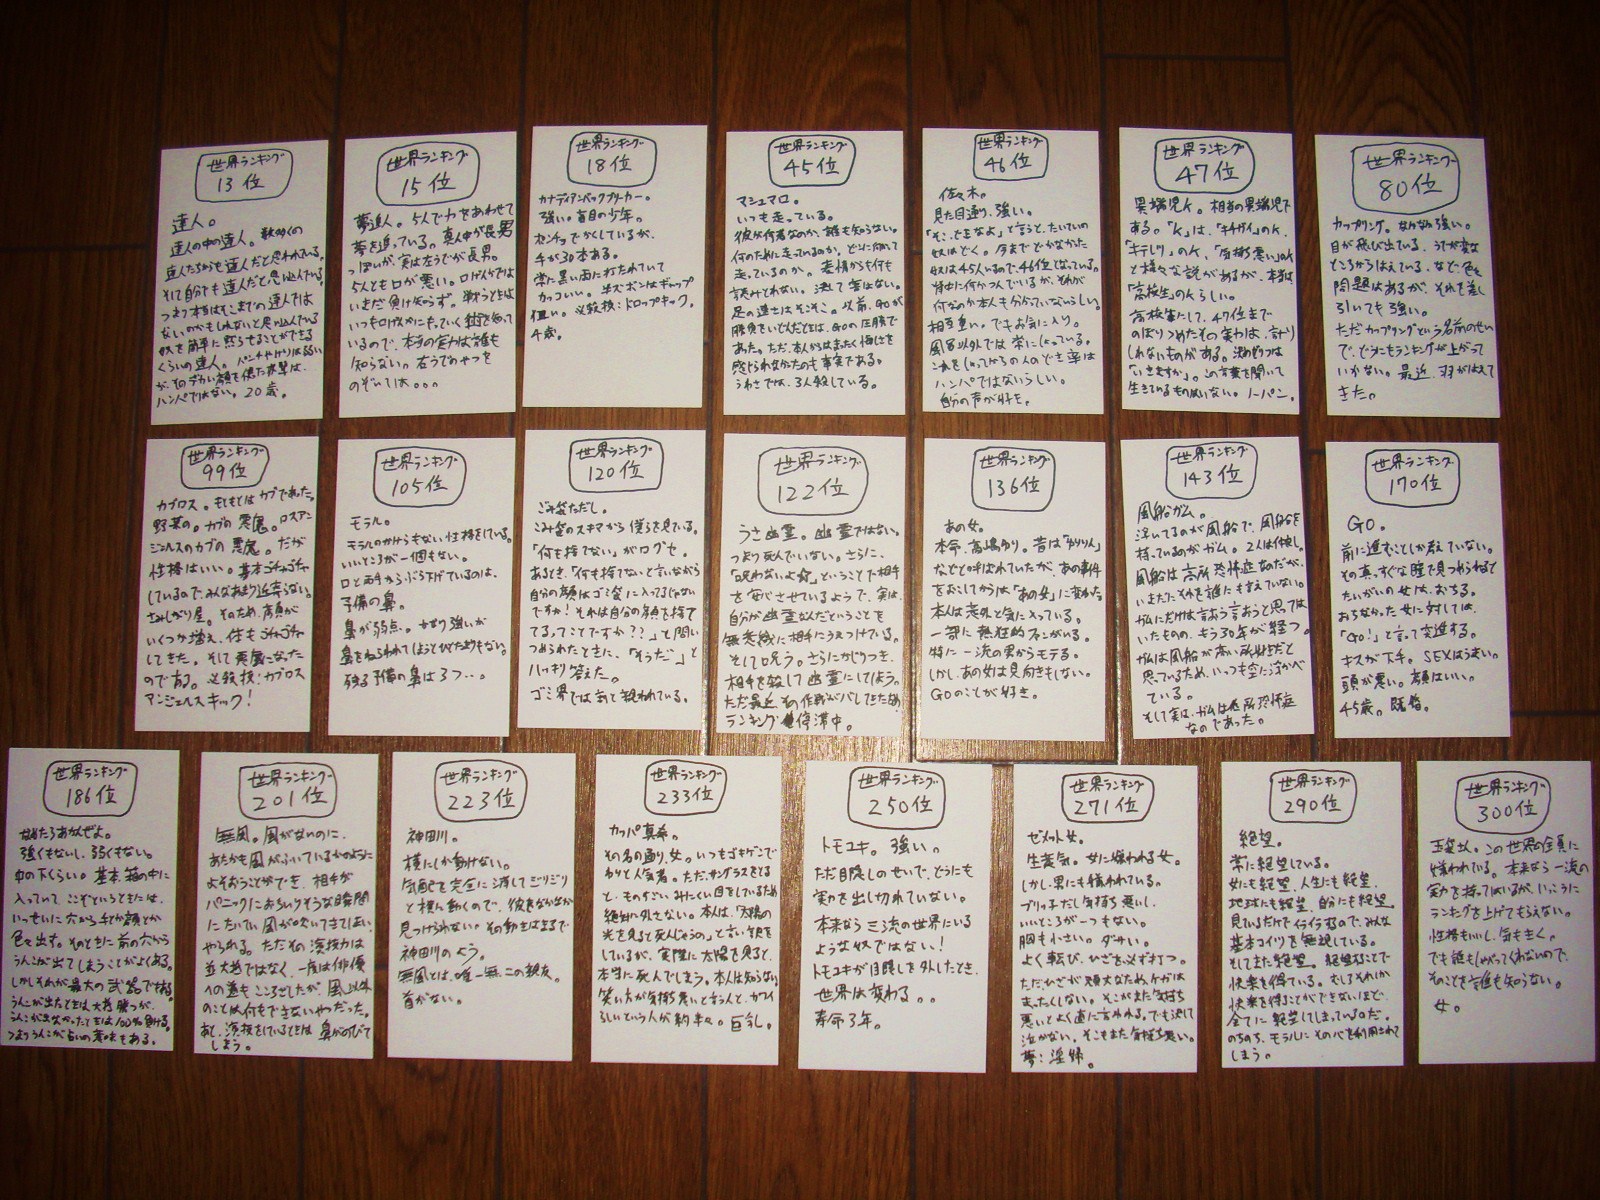 世界ランキング
13位
達人。
達人の中の達人。数多くの
達人たちからも達人だと思われている。
そして自分でも達人だと思い込んでいる。
つまり本当はそこまでの達人では
ないのかもしれないと思い込んでいる
奴を簡単に黙らせることができる
くらいの達人。パンチやけりは弱い
が、そのデカい顔を使った攻撃は、
ハンパではない。20歳。
世界ランキング
15位
夢追人。5人で力をあわせて
夢を追っている。真ん中が長男
っぽいが、実は左うでが長男。
5人とも口が悪い。口げんかでは
いまだ負け知らず。戦うときは
いつも口げんかにもっていく術を知って
いるので、本当の実力は誰も
知らない。右うでのやつを
のぞいては。。。
世界ランキング
18位
カナディアンバックブリーカー。
強い。盲目の少年。
センチョでかくしているが、
手が30本ある。
常に黒い雨に打たれていて
カッコいい。半ズボンはギャップ
狙い。必殺技:ドロップキック。
4歳。
世界ランキング
45位
マシュマロ。
いつも走っている。
彼が何者なのか、誰も知らない。
何のために走っているのか、どこに向って
走っているのか。表情からも何も
読みとれない。決して笑はない。
足の速さはそこそこ。以前、GOが
勝負をいどんだときは、GOの圧勝で
あった。ただ、本人からはまったく悔しさを
感じられなかったのも事実である。
うわさでは、3人殺している。
世界ランキング
46位
佐々木。
見た目通り、強い。
「そこ、どきなよ」と言うと、たいていの
奴はどく。今までどかなかった
奴は45人いるので、46位となっている。
背中に何かつんでいるが、それが
何なのか本人も分かっていないらしい。
相当重い。でもお気に入り。
風呂以外では常にしょっている。
これをしょってからの人のどき率は
ハンパではないらしい。
自分の声が好き。
世界ランキング
47位
異端児K。相当の異端児で
ある。「K」は、「キチガイ」のK、
「キテレツ」のK、「気持ち悪い」のK
と様々な説があるが、本当は
「高校生」のKらしい。
高校生にして、47位まで
のぼりつめたその実力は、計り
しれないものがある。決めゼリフは
「いきますか」。この言葉を聞いて
生きているものはいない。ノーパン。
世界ランキング
80位
カップリング。なかなか強い。
目が飛び出ている、うでが変な
ところからはえている、など、色々
問題はあるが、それを差し
引いても強い。
ただカップリングという名前のせい
で、どうにもランキングが上がって
いかない。最近、羽がはえて
きた。
世界ランキング
99位
カブロス。もともとはカブであった。
野菜の。カブの悪魔。ロスアン
ジェルスのカブの悪魔。だが
性格はいい。基本ゴチャゴチャ
しているので、みんなあまり近寄らない。
さみしがり屋。そのため、顔が
いくつか増え、体もゴチャゴチャ
してきた。そして悪魔になった
のである。必殺技:カブロス
アンジェルスキック!
世界ランキング
105位
モラル。
モラルのかけらもない性格をしている。
いいところが一個もない。
口と両手からぶら下げているのは、
予備の鼻。
鼻が弱点。かなり強いが
鼻をねらわれてしまうとひとたまりもない。
残る予備の鼻は3つ…。
世界ランキング
120位
ごみ袋ただし。
ごみ袋のスキマから僕らを見ている。
「何も捨てない」が口グセ。
あるとき、「何も捨てないと言いながら
自分の顔はゴミ袋に入ってるじゃない
ですか!それは自分の顔を捨て
てるってことですか??」と問い
つめられたときに、「そうだ」と
ハッキリ答えた。
ゴミ界では割と狙われている。
世界ランキング
122位
うさ幽霊。幽霊ではない。
つまり死んでいない。さらに、
「呪わないよ☆」ということで相手
を安心させているようで、実は、
自分が幽霊なんだということを
無意識に相手にうえつけている。
そして呪う。さらにかじりつき、
相手を殺して幽霊にしてしまう。
ただ最近、その作戦がバレてきたため
ランキング停滞中。
世界ランキング
136位
あの女。
本命、高嶋ゆり。昔は「ゆりりん」
などと呼ばれていたが、あの事件
をおこしてからは「あの女」に変わった。
本人は意外と気に入っている。
一部に熱狂的ファンがいる。
特に一流の男からモテる。
しかし、あの女は見向きもしない。
GOのことが好き。
世界ランキング
143位
風船ガム。
浮いてるのが風船で、風船を
持っているのがガム。2人は仲良し。
風船は高所恐怖症なのだが、
いまだにそれを誰にも言えていない。
ガムにだけは言おう言おうと思っては
いたものの、もう30年が経つ。
ガムは風船が高い所好きだと
思っているため、いつも空に浮かべ
ている。
そして実は、ガムは低所恐怖症
なのであった。
世界ランキング
170位
GO。
前に進むことしか考えていない。
その真っすぐな瞳で見つめられると
たいがいの女は、おちる。
おちなかった女に対しては、
「GO!」と言って突進する。
キスが下手。SEXはうまい。
頭が悪い。顔はいい。
45歳。既婚。
世界ランキング
186位
なめたらあかんぜよ。
強くもないし、弱くもない。
中の下くらい。基本、箱の中に
入っていて、ここぞというときには、
いっせいに穴から手とか顔とか
色々出す。そのときに前の穴から
うんこが出てしまうことがよくある。
しかしそれが最大の武器でもある。
うんこが出たときは大抵勝つが、
うんこが出なかったときは100%負ける。
つまりうんこが占いの意味もある。
世界ランキング
201位
無風。風がないのに、
あたかも風がふいているかのように
よそおうことができ、相手が
パニックにおちいりそうな瞬間
にたいてい風が吹いてきてしまい、
やられる。ただその演技力は
並大抵ではなく、一度は俳優
への道もこころざしたが、風以外
のことは何もできないやつだった。
あと、演技をしているときは鼻がのびて
しまう。
世界ランキング
223位
神田川。
横にしか動けない。
気配を完全に消してジリジリ
と横に動くので、彼をなかなか
見つけられない。その動きはまるで
神田川のよう。
無風とは、唯一無二の親友。
首がない。
世界ランキング
233位
カッパ真希。
その名の通り、女。いつもゴキゲンで
わりと人気者。ただ、サングラスをとる
と、ものすごいみにくい目をしているため
絶対に外さない。本人は、「太陽の
光を見ると死んじゃうの」と言い訳を
しているが、実際に太陽を見ると、
本当に死んでしまう。本人は知らない。
笑い方が気持ち悪いと言う人と、カワイ
らしいという人が約半々。巨乳。
世界ランキング
250位
トモユキ。強い。
ただ目隠しのせいで、どうにも
実力を出し切れていない。
本来なら三流の世界にいる
ような奴ではない!
トモユキが目隠しを外したとき、
世界は変わる。。
寿命3年。
世界ランキング
271位
ゼメット女。
生意気。女に嫌われる女。
しかし男にも嫌われている。
ブリッ子だし気持ち悪いし、
いいところが一つもない。
胸も小さい。ダサい。
よく転び、ひざを必ず打つ。
ただひざが頑丈なため、ケガは
まったくしない。そこがまた気持ち
悪いとよく直に言われる。でも決して
泣かない。そこもまた気持ち悪い。
夢:淫婦。
世界ランキング
290位
絶望。
常に絶望している。
女にも絶望、人生にも絶望、
地球にも絶望、自分にも絶望。
見ているだけでイライラするので、みんな
基本コイツを無視している。
そしてまた絶望。絶望することで
快楽を得ている。むしろそれしか
快楽を得ることができないほど、
全てに絶望してしまっているのだ。
のちのち、モラルにその心を利用されて
しまう。
世界ランキング
300位
玉袋さん。この世界の全員に
嫌われている。本来なら一流の
実力を持ってはいるが、いっこうに
ランキングを上げてもらえない。
性格もいいし、気もきく。
でも誰もしゃべってくれないので、
そのことを誰も知らない。
女。